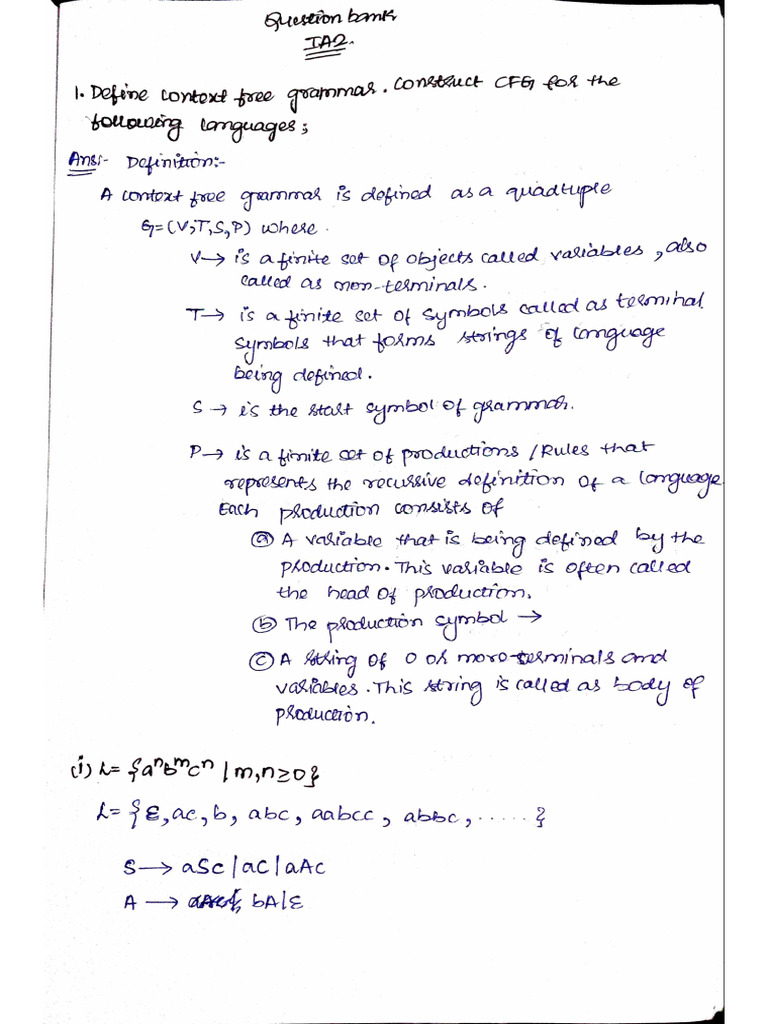 Question bank
IA2.
1. Define context free grammar. Construct CFG for the
following languages;
Ans:- Definition:-
A context free grammar is defined as a quadtuple
G=(V,T,S,P) where.
V→ is a finite set of objects called variables, also
called as non-terminals.
T→ is a finite set of symbols called as terminal
symbols that forms strings of language
being defined.
S → is the start symbol of grammar.
P→ is a finite set of productions /Rules that
represents the recursive definition of a language
Each production consists of
ⓐ A variable that is being defined by the
production. This variable is often called
the head of production.
ⓑ The production symbol →
ⓒ A string of 0 or more terminals and
variables. This string is called as body of
production.
(i) L= {aⁿbᵐcⁿ | m,n≥0}
L= {ε, ac, b, abc, aabcc, abbc, ......}
S → aSc | ac | aAc
A → bA | ε